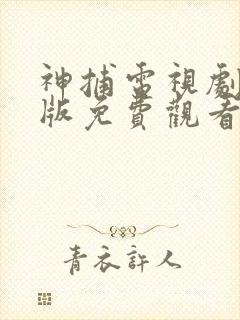 神捕電視劇
版免費觀看
青衣許人